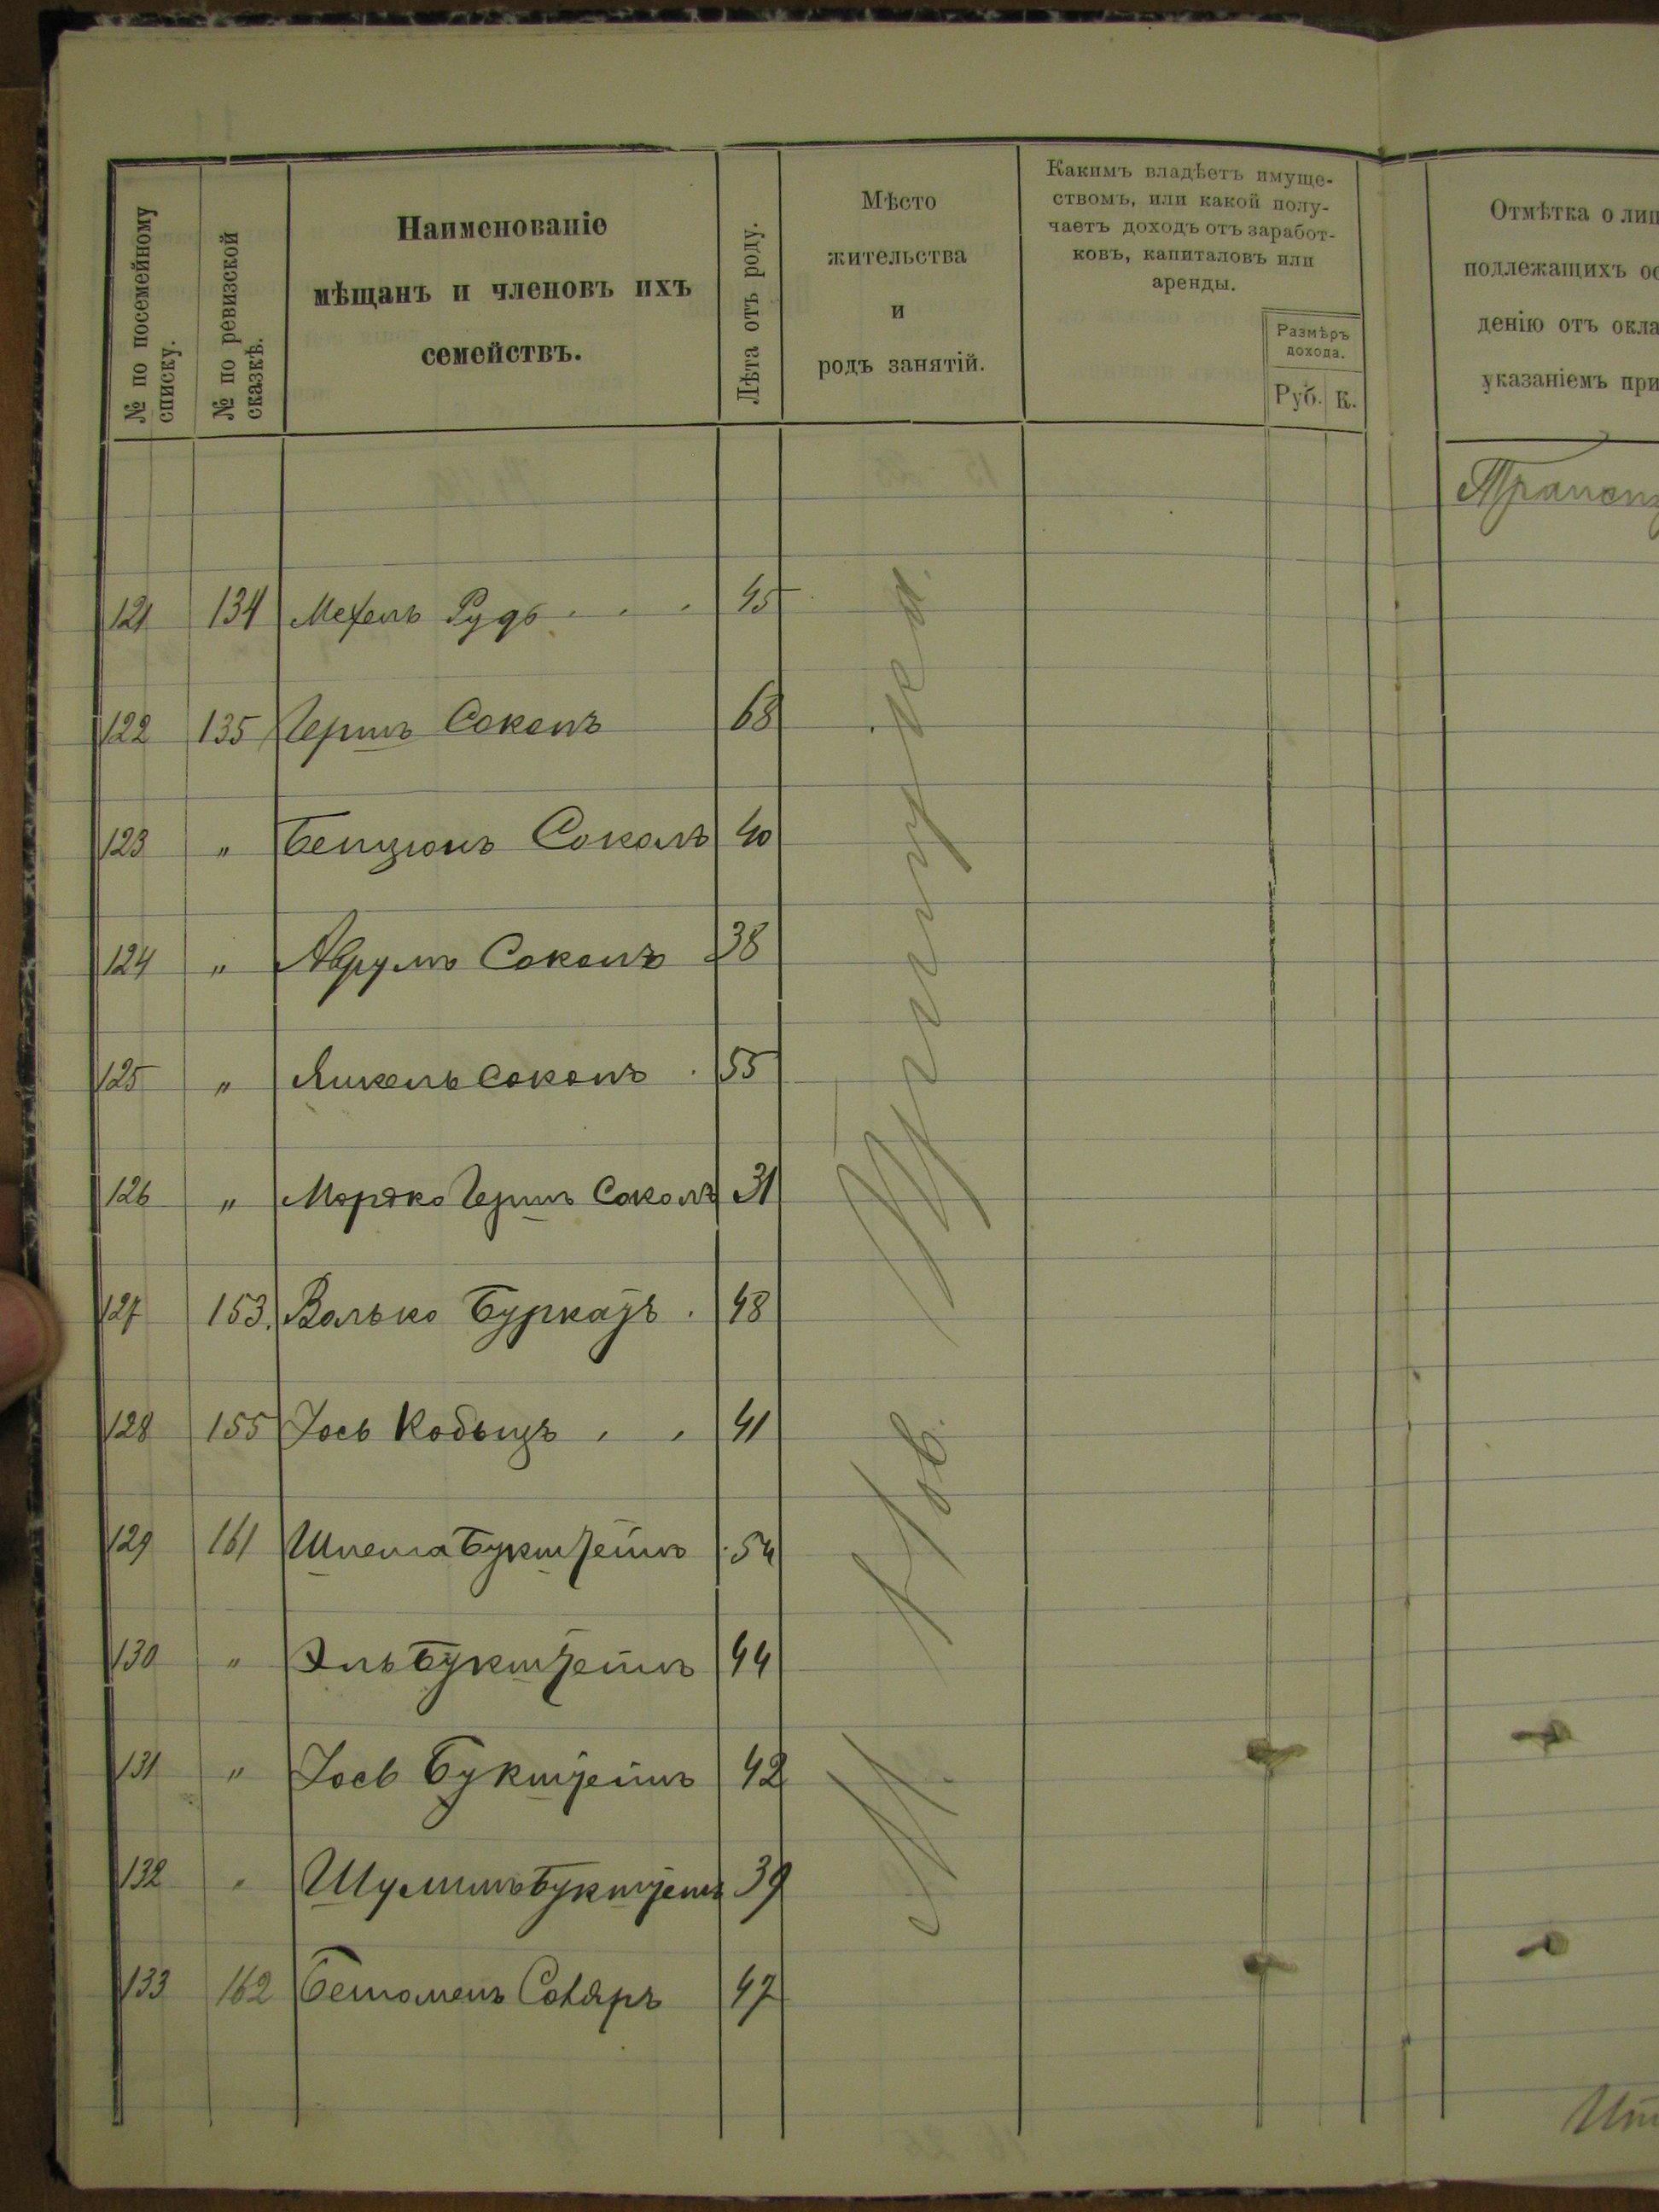 № по посемейному
списку.
№ по ревизской
сказкѣ.
Наименованіе
мѣщанъ и членовъ ихъ
семействъ.
Лѣта отъ роду.
Мѣсто
жительства
и
родъ занятій.
Какимъ владѣетъ имуще-
ствомъ, или какой полу-
чаетъ доходъ отъ заработ-
ковъ, капиталовъ или
аренды.
Размѣръ
дохода.
Руб. К.
Отмѣтка о лиц
подлежащихъ ос
денію отъ окла
указаніемъ при
Трансп
121 134 Мехель Рудь 45
122 135 Гершъ Соколъ 68
123 „ Бенціонъ Соколъ 40
124 „ Аврумъ Соколъ 38
125 „ Янкель Соколъ 55
126 „ Мордко Гершъ Соколъ 31
127 153. Волько Буркатъ 48
128 155 Іось Кобыцъ 41
129 161 Шлема Букштейнъ 54
130 „ Эль Букштейнъ 44
131 „ Іось Букштейнъ 42
132 „ Шулимъ Букштейнъ 39
133 162 Сотяръ 47
М. Нов.
Ит